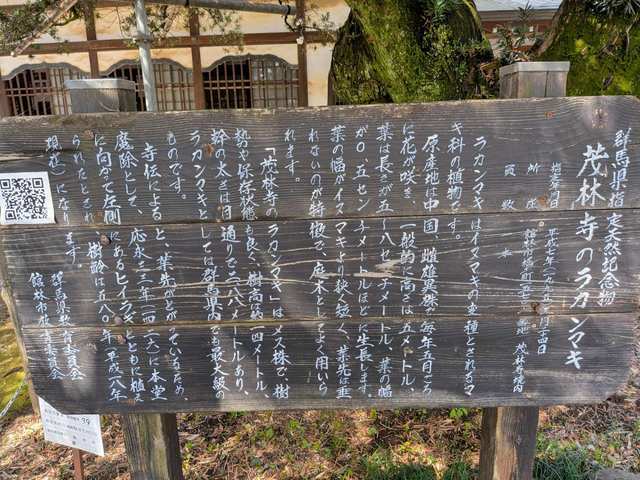 群馬県指定天然記念物
茂林寺のラカンマキ
指定年月日 平成七年
所在地 館林市堀工町 茂林寺境内
員数
ラカンマキはイヌマキの変種とされるマ
キ科の植物です。
原産地は中国、雌雄異株で毎年五月ごろ
に花が咲き、一般的に高さは五メートル、
葉は長さが五〜八センチメートル、葉の幅
が〇、五センチメートルほどに生長します。
葉の幅がイヌマキより狭く短く、葉先は垂
れないのが特徴で、庭木としてよく用いら
れます。
「茂林寺のラカンマキ」はメス株で樹
勢や保存状態も良く、樹高約一四メートル、
幹の太さは目通りで三、八メートルあり、
ラカンマキとしては群馬県内でも最大級の
ものです。
寺伝によると、葉先がとがっているため、
魔除として、応永三三年(一四二六)に本堂
に向かって左側にあるヒイラギとともに植え
られたとされ、樹齢は五八〇年(平成一八年
現在)になります。
群馬県教育委員会
館林市教育委員会
39